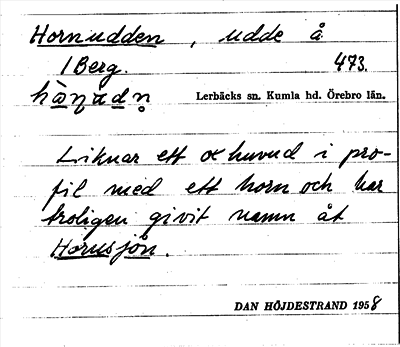 Hornudden, udde å
1 Berg. 473.
Lerbäcks sn. Kumla hd. Örebro län.
Liknar ett oxhuvud i pro-
fil med ett horn och har
troligen givit namn åt
Hornsjön.
DAN HÖJDESTRAND 1958